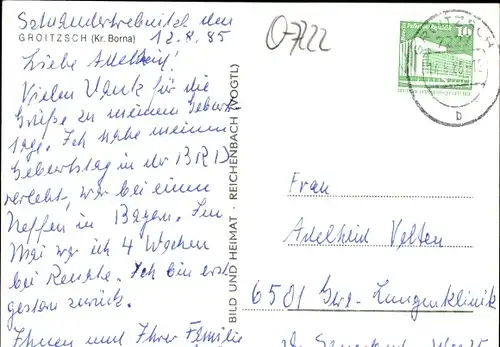 GROITZSCH (Kr. Borna)
12.8.85
0-7222
Liebe Adelheid!
Vielen Dank für die
Grüße zu meinem Geburts
tage. Ich habe meinen
Geburtstag in der BRD
verlebt, war bei einem
Neffen in Bayern. Im
Mai war ich 4 Wochen
bei Renate. Ich bin erst
gestern zurück.
Ihnen und Ihrer Familie
BILD UND HEIMAT · REICHENBACH (VOGTL)
10
b
Frau
Adelheid Velten
6501 Lungenklinik